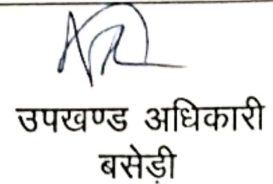 उपखण्ड अधिकारी
बसेड़ी